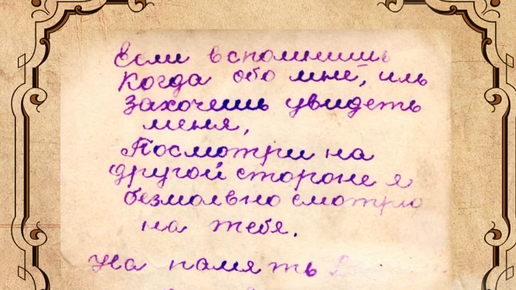 Если вспомнишь
когда обо мне, иль
захочешь увидеть
меня,
Посмотри на
другой стороне я
безмолвно смотрю
на тебя.
На память